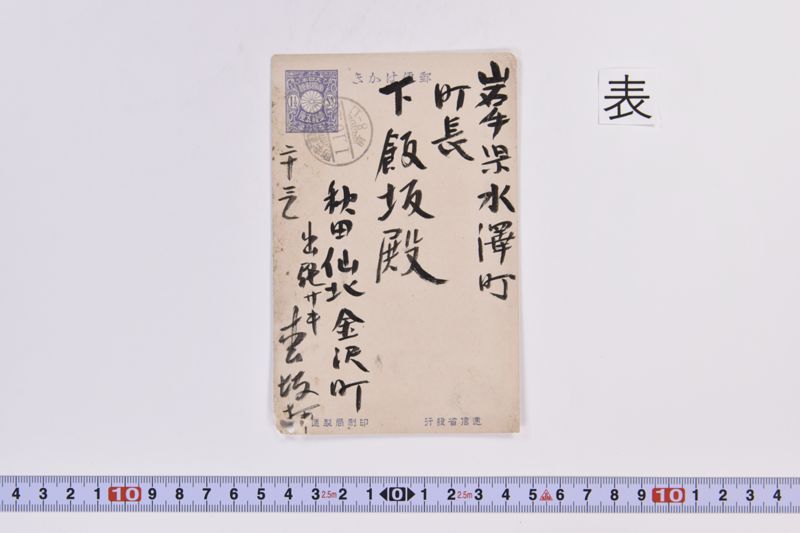 郵便はかき
岩手県水澤町
町長
下飯坂殿
秋田仙北金沢町
出発サキ
二十三
逓信省発行
印刷局製造
表
4 3 2 1 10 9 8 7 6 5 4 3 2.5m 2 1 0 1 2 2.5m 3 4 5 6 7 8 9 10 1 2 3 4